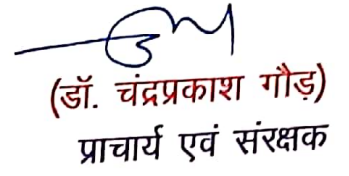 (डॉ. चंद्रप्रकाश गौड़)
प्राचार्य एवं संरक्षक